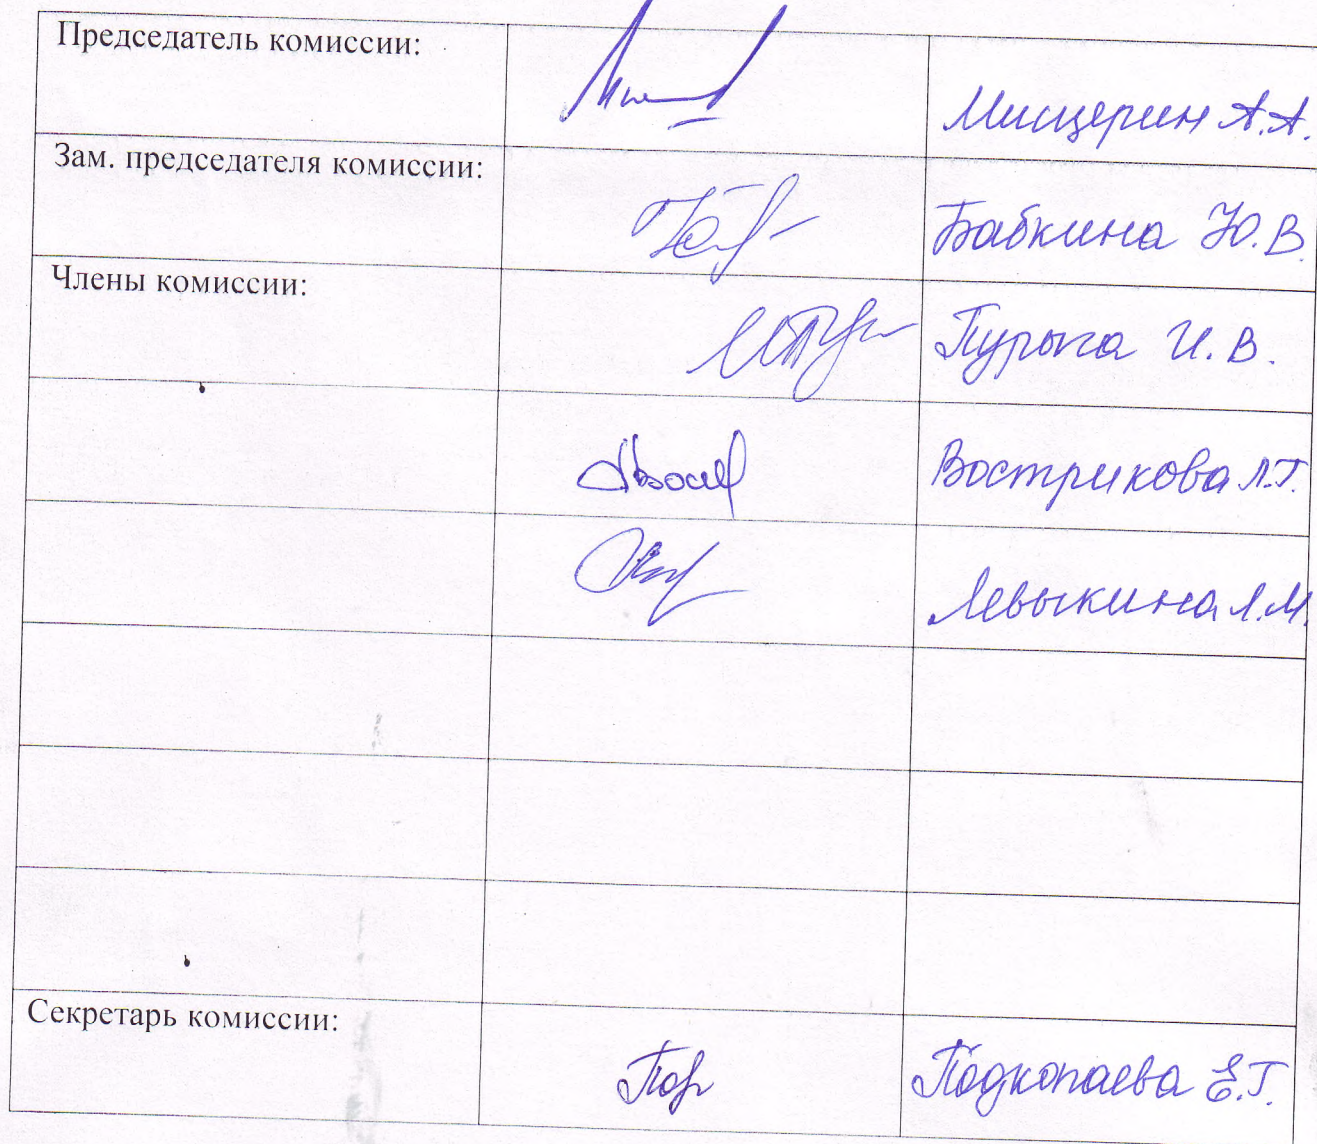 Председатель комиссии: Мицерин А.А.
Зам. председателя комиссии: Бабкина Ю.В.
Члены комиссии: Пурыга И.В.
Вострикова Л.Г.
Левыкина Л.М.
Секретарь комиссии: Подкопаева Е.Г.